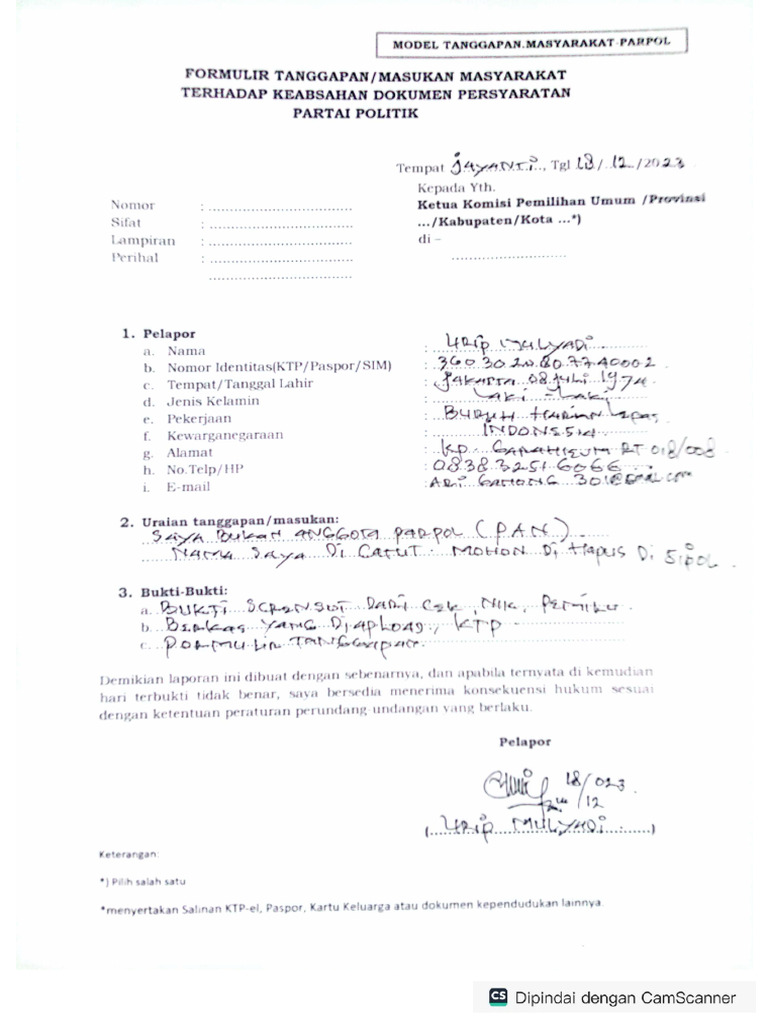 MODEL TANGGAPAN.MASYARAKAT-PARPOL
FORMULIR TANGGAPAN/MASUKAN MASYARAKAT
TERHADAP KEABSAHAN DOKUMEN PERSYARATAN
PARTAI POLITIK
Tempat JAYANTI, Tgl 18/12/2023
Kepada Yth.
Nomor : ................................
Ketua Komisi Pemilihan Umum /Provinsi
Sifat : ................................
.../Kabupaten/Kota ...*)
Lampiran : ................................
di –
Perihal : ................................
..........................
................................
1. Pelapor
a. Nama : URip MULYADi
b. Nomor Identitas(KTP/Paspor/SIM) : 3603020807740002
c. Tempat/Tanggal Lahir : JAKARTA 08 JULI 1974
d. Jenis Kelamin : LAKI - LAKI
e. Pekerjaan : BURUH HARIAN Lepas
f. Kewarganegaraan : INDONESIA
g. Alamat : KP. RT 018/008
h. No.Telp/HP : 083832516066
i. E-mail : ARI GAHONG 301@Gmail.com
2. Uraian tanggapan/masukan:
SAYA BUKAN ANGGOTA PARPOL (PAN)
NAMA SAYA Di CATUT. MOHON Di HAPUS Di SipoL
3. Bukti-Bukti:
a. BUKTI SCRENSUT DARI CEK, NIK, PEMILU
b. BERKAS YANG DiAPLOAD, KTP
c. FORMULIR TANGGAPAN
Demikian laporan ini dibuat dengan sebenarnya, dan apabila ternyata di kemudian
hari terbukti tidak benar, saya bersedia menerima konsekuensi hukum sesuai
dengan ketentuan peraturan perundang-undangan yang berlaku.
Pelapor
18/023
/12
(URip MULYADi)
Keterangan:
*) Pilih salah satu
*menyertakan Salinan KTP-el, Paspor, Kartu Keluarga atau dokumen kependudukan lainnya.
CS Dipindai dengan CamScanner